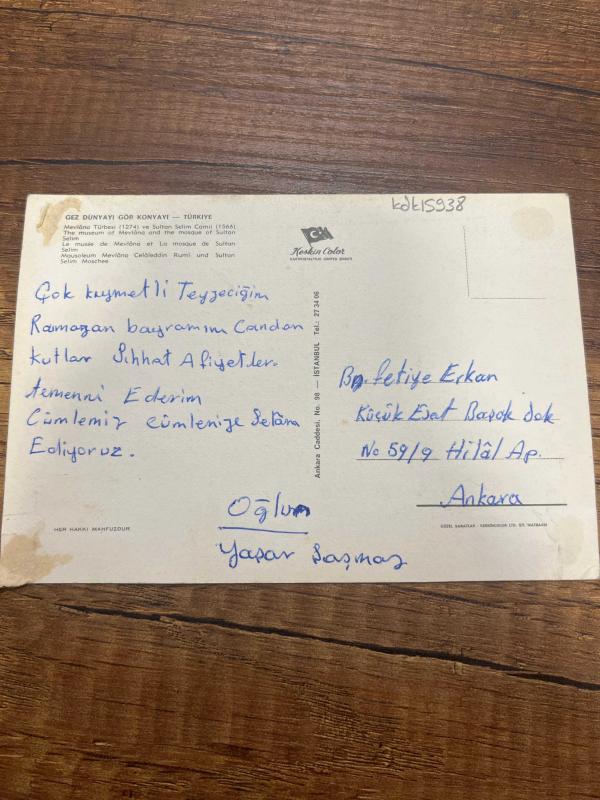 kdk15938
GEZ DÜNYAYI GÖR KONYAYI — TÜRKIYE
Mevlâna Türbesi (1274) ve Sultan Selim Camii (1566)
The museum of Mevlâna and the mosque of Sultan
Selim
Le musée de Mevlâna et La mosque de Sultan
Selim
Mausoleum Mevlâna Celâleddin Rumi und Sultan
Selim Moschee
Keskin Color
KARTPOSTALCILIK LIMITED ŞIRKETI
Çok kıymetli Teyzeciğim
Ramazan bayramını Candan
kutlar Sıhhat Afiyetler
temenni Ederim
Cümlemiz cümlenize Selâm
Ediyoruz.
Oğlun
Yaşar Şaşmaz
Ankara Caddesi, No. 98 — ISTANBUL Tel.: 27 34 06
Bn. Fetiye Erkan
Küçük Esat Başak Sok
No 59/9 Hilâl Ap.
Ankara
HER HAKKI MAHFUZDUR
GÜZEL SANATLAR - KESKINCOLOR LTD. ŞTI. MATBAASI